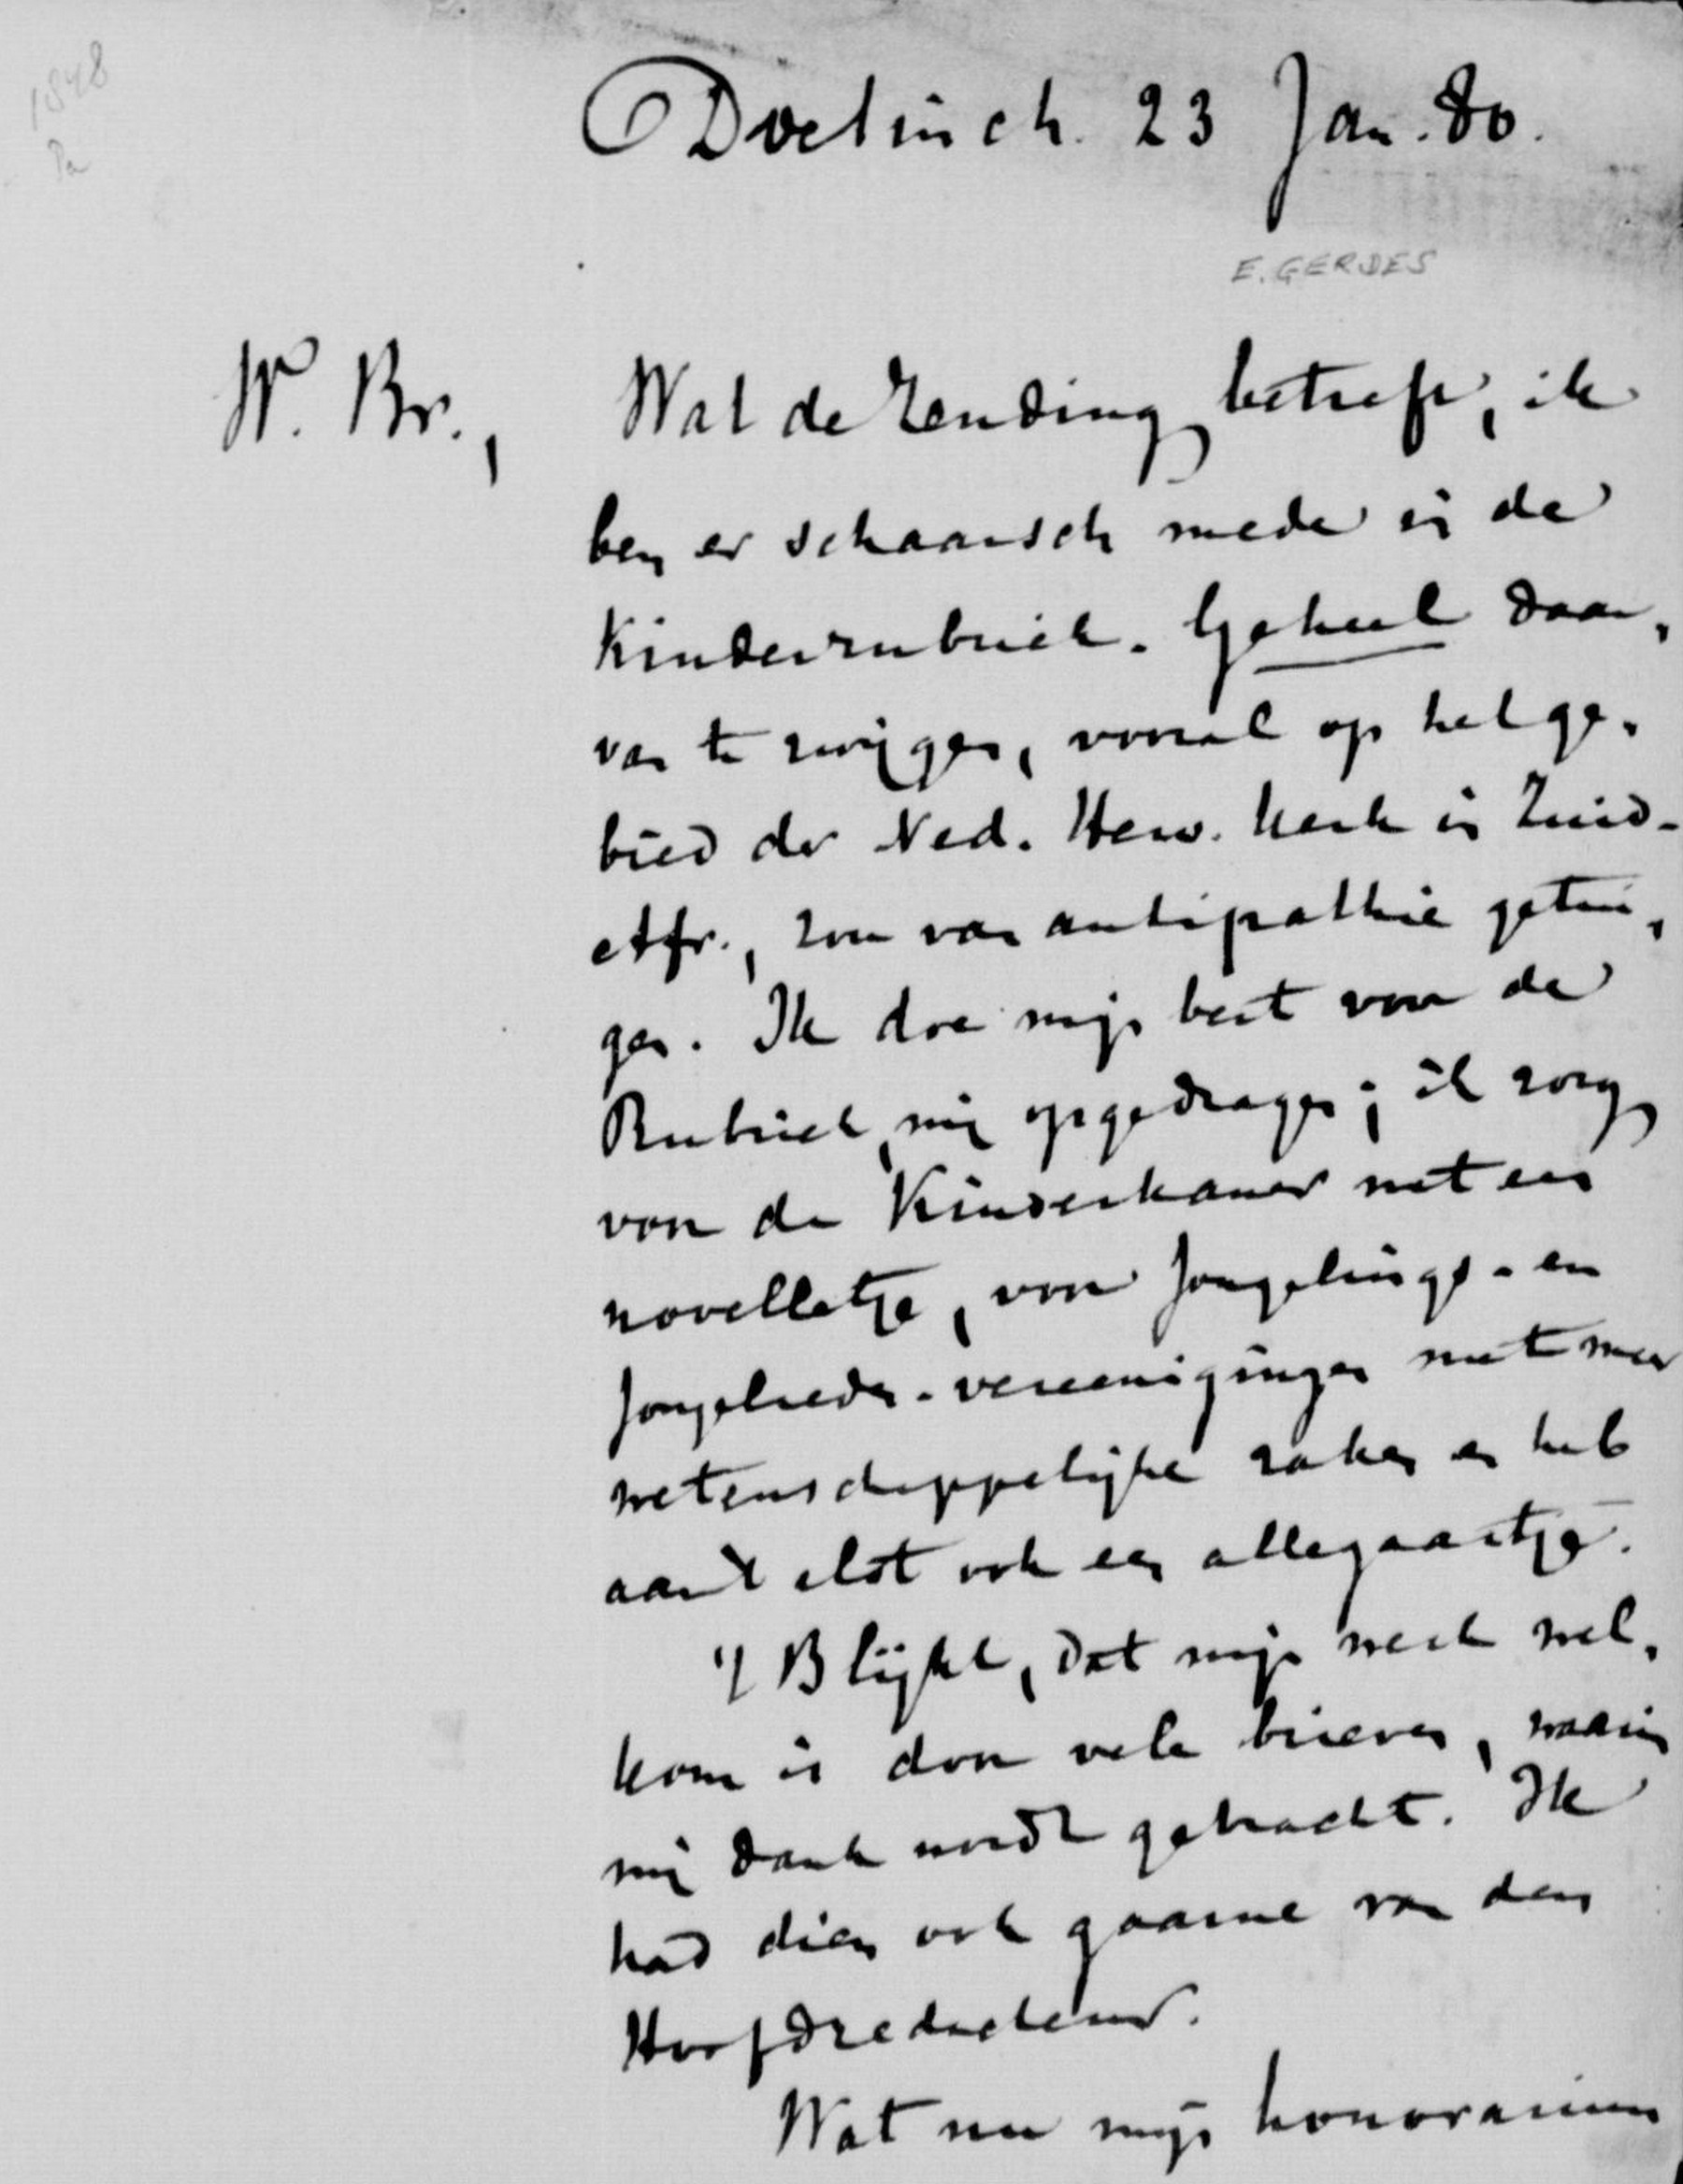 1848
Pa
Doetinch. 23 Jan. 80.
E. GERDES
W. Br., Wat de Zending betreft, ik
ben er schaarsch mede in de
Kinderrubriek. Geheel daar,
van te zwijgen, vooral op het ge,
bied der Ned. Herv. Kerk in Zuid-
Afr., zou van antipathie getui,
gen. Ik doe mijn best voor de
Rubriek, mij opgedragen; ik zorg
voor de Kinderkamer met een
novelletje, voor Jongelings- en
Jongelieden-vereenigingen met meer
wetenschappelijke zaken en heb
aan 't slot ook een allegaartje.
't Blijkt, dat mijn werk wel,
kom is door vele brieven, waarin
mij dank wordt gebracht. Ik
had dien ook gaarne van den
Hoofdredacteur.
Wat nu mijn honorarium